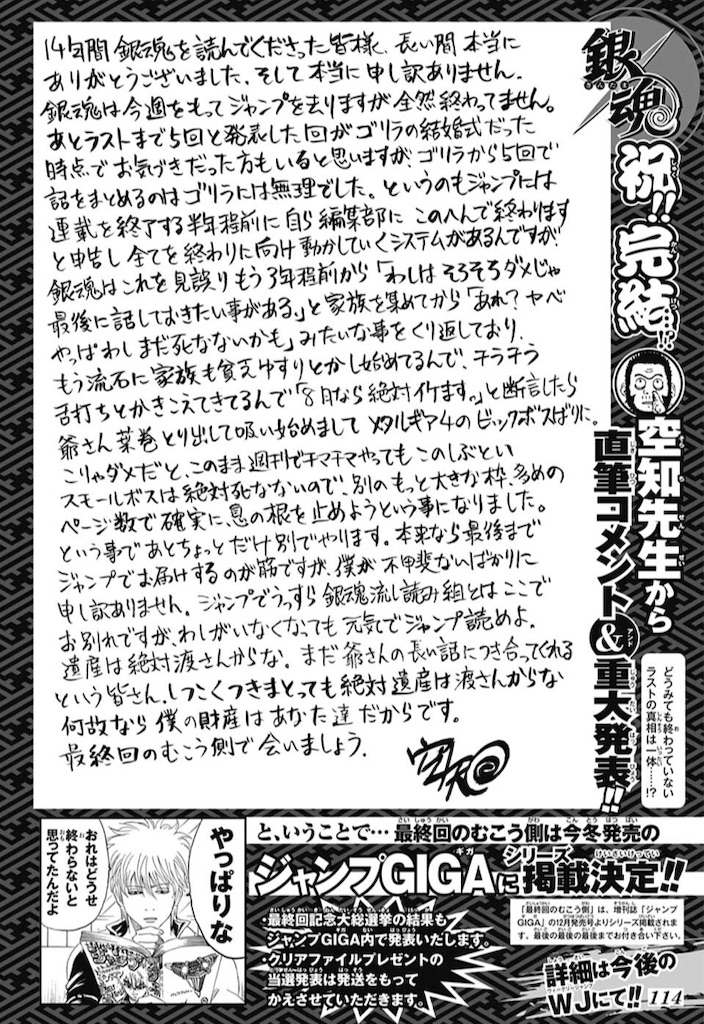 14年間 銀魂を読んでくださった皆様、長い間 本当に
ありがとうございました、そして本当に申し訳ありません。
銀魂は今週をもってジャンプを去りますが全然終わってません。
あとラストまで5回と発表した回がゴリラの結婚式だった
時点でお気づきだった方もいると思いますが、ゴリラから5回で
話をまとめるのはゴリラには無理でした。というのもジャンプには
連載を終了する半年程前に自ら編集部に このへんで終わります
と申告し全てを終わりに向け動かしていくシステムがあるんですが
銀魂はこれを見誤りもう3年程前から「わしは そろそろダメじゃ
最後に話しておきたい事がある。」と家族を集めてから「あれ?ヤベ
やっぱわしまだ死なないかも」みたいな事をくり返しており、
もう流石に家族も貧乏ゆすりとかし始めてるんで、チラチラ
舌打ちとかきこえてきてるんで「8月なら絶対イケます。」と断言したら
爺さん葉巻とり出して吸い始めまして メタルギア4のビックボスばりに。
こりゃダメだと、このまま週刊でチマチマやってもこのしぶとい
スモールボスは絶対死なないので、別のもっと大きな枠、多めの
ページ数で確実に息の根を止めようという事になりました。
という事であとちょっとだけ別でやります。本来なら最後まで
ジャンプでお届けするのが筋ですが、僕が不甲斐ないばかりに
申し訳ありません。ジャンプでうっすら銀魂流し読み組とはここで
お別れですが、わしがいなくなっても元気でジャンプ読めよ。
遺産は絶対渡さんからな。まだ爺さんの長い話につき合ってくれる
という皆さん、しつこくつきまとっても絶対遺産は渡さんからな
何故なら僕の財産はあなた達だからです。
最終回のむこう側で会いましょう.
空知
銀魂
ぎんたま
祝!! 完結…!!
空知先生から
直筆コメント&重大発表!!
どうみても終わっていない
ラストの真相は一体……!?
やっぱりな
おれはどうせ
終わらないと
思ってたんだよ
と、いうことで…最終回のむこう側は今冬発売の
ジャンプGIGAにシリーズ掲載決定!!
・最終回記念大総選挙の結果も
ジャンプGIGA内で発表いたします。
・クリアファイルプレゼントの
当選発表は発送をもって
かえさせていただきます。
「最終回のむこう側」は、増刊誌「ジャンプ
GIGA」の12月発売号よりシリーズ掲載されま
す。最後の最後の最後までお付き合い下さい。
詳細は今後の
WJにて!!
114